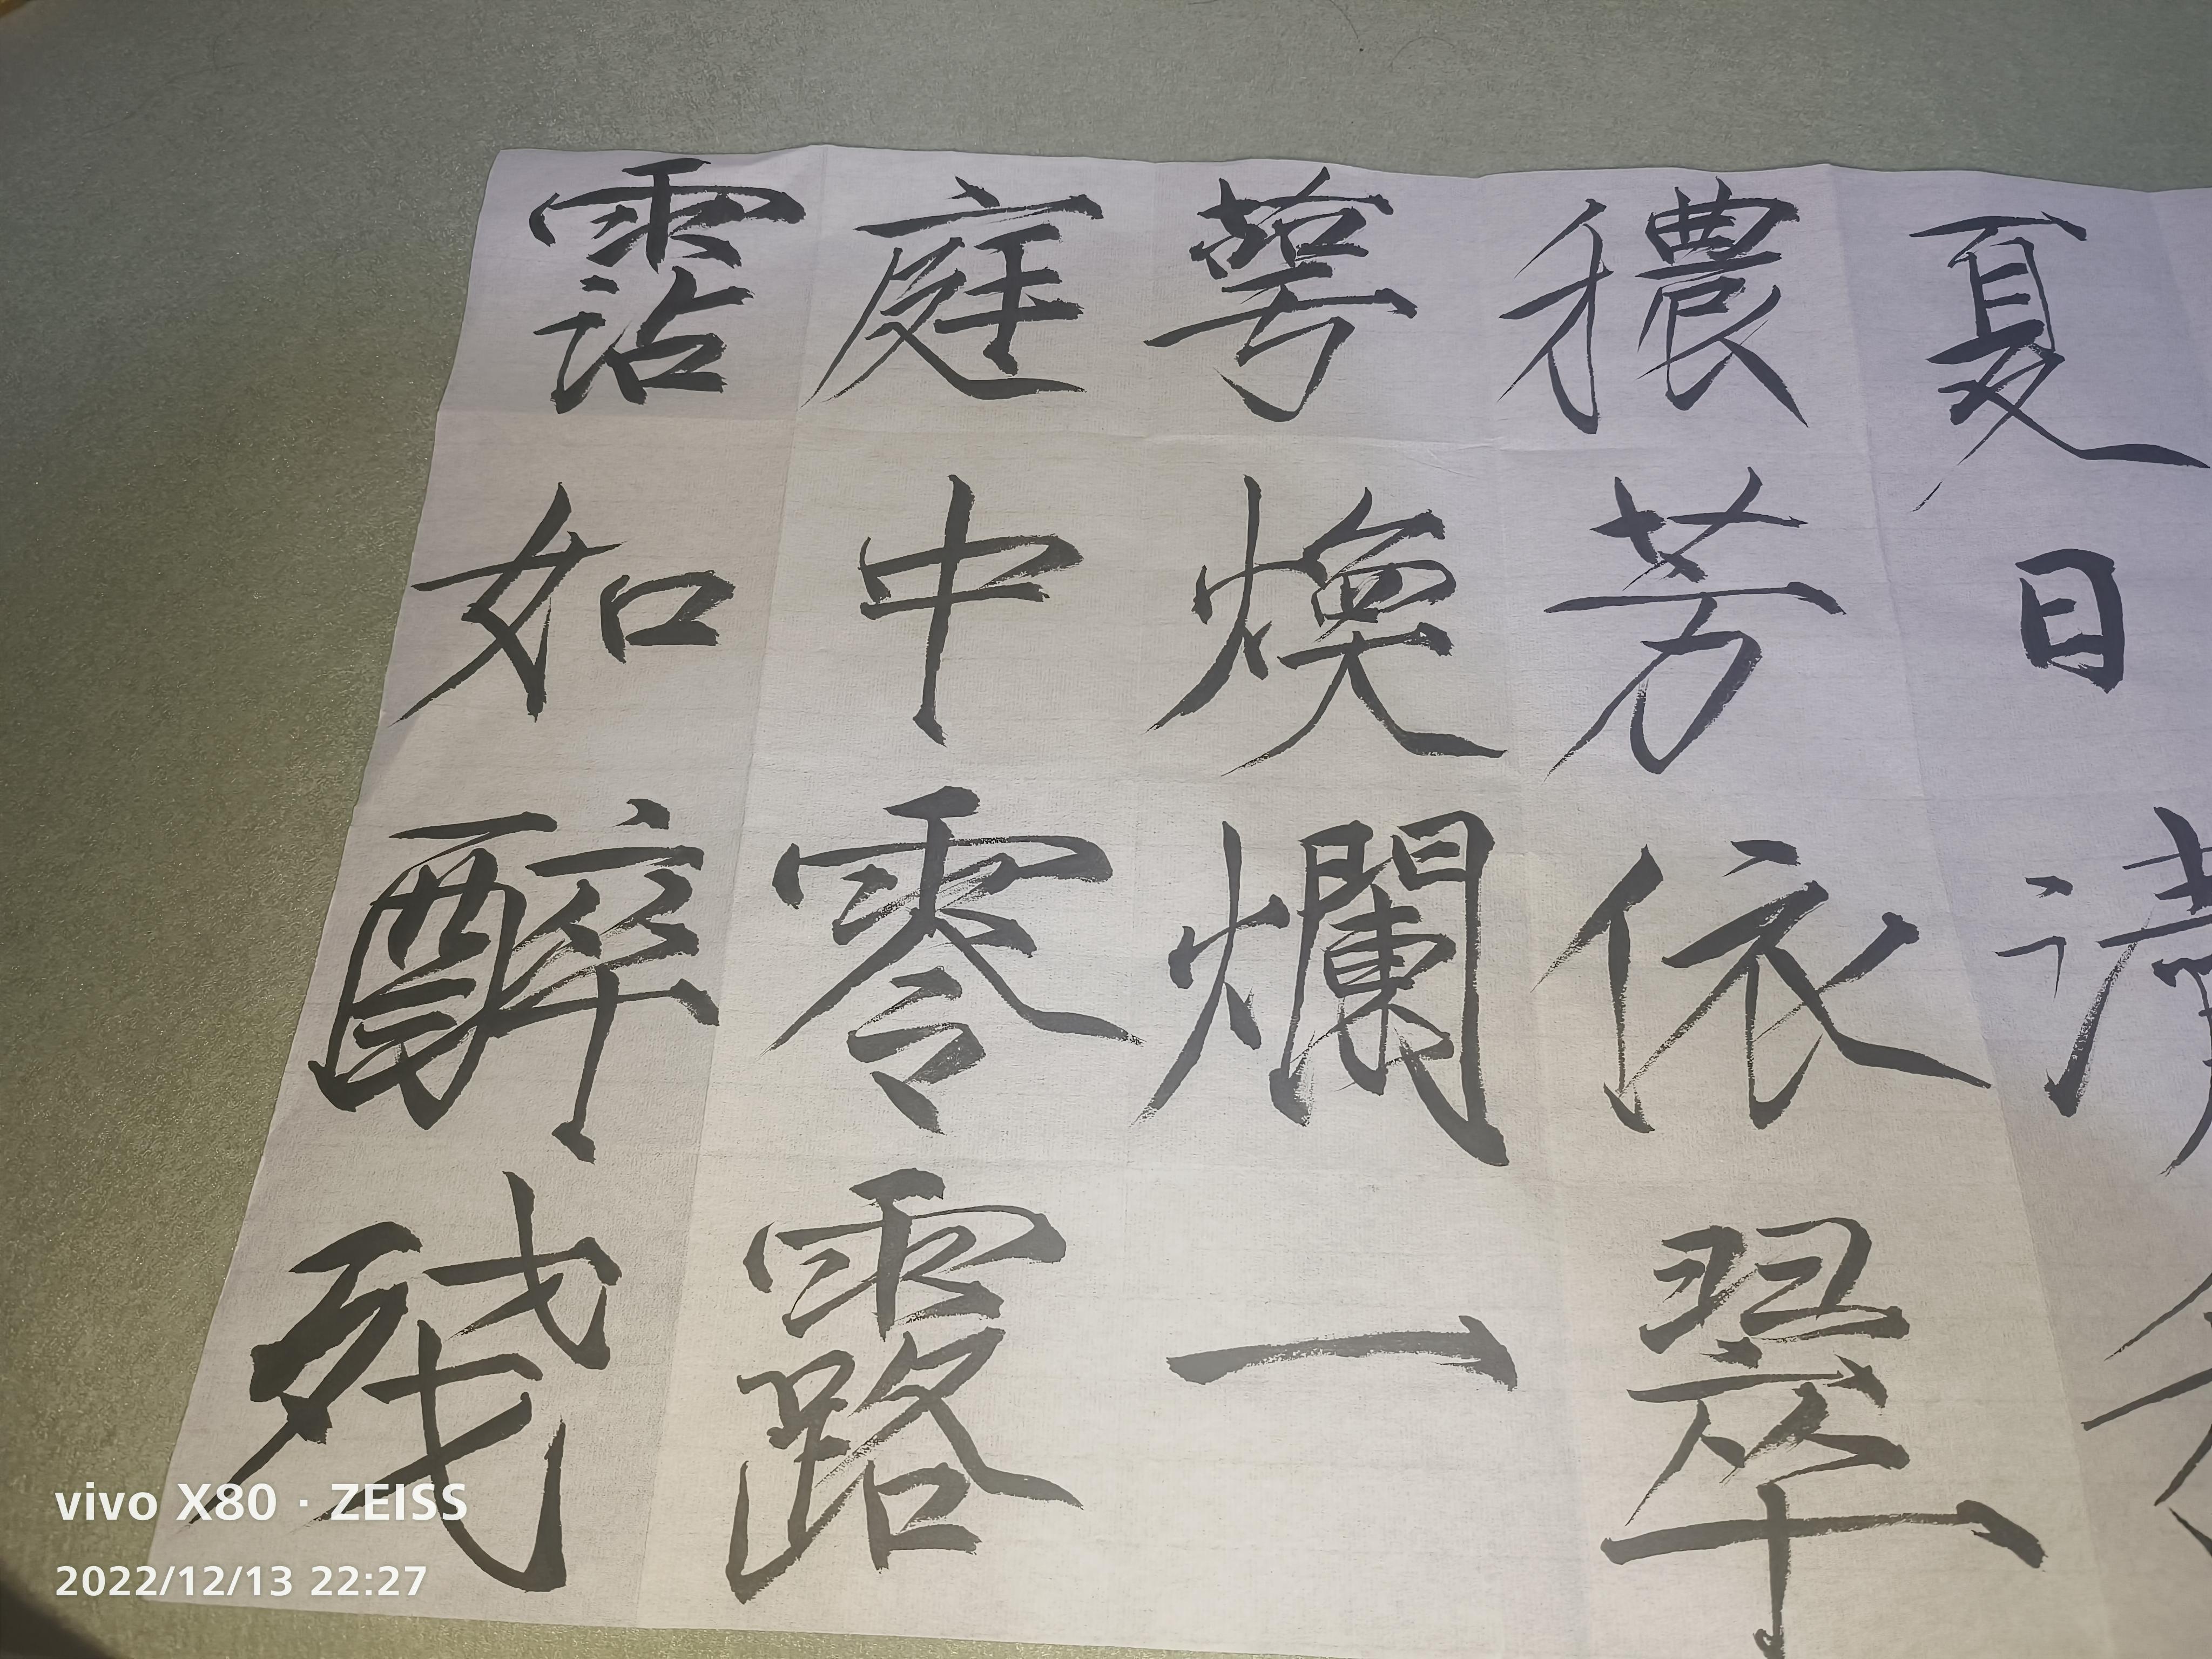 夏日清
穠芳依翠
萼煥爛一
庭中零露
霑如醉殘
vivo X80 · ZEISS
2022/12/13 22:27